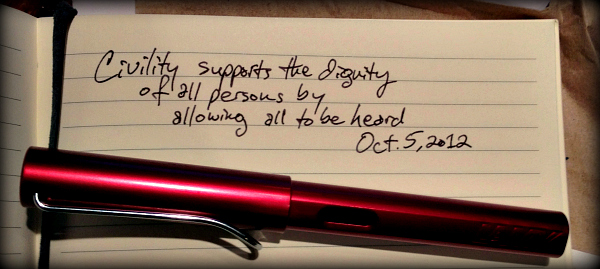 Civility supports the dignity
of all persons by
allowing all to be heard
Oct. 5, 2012